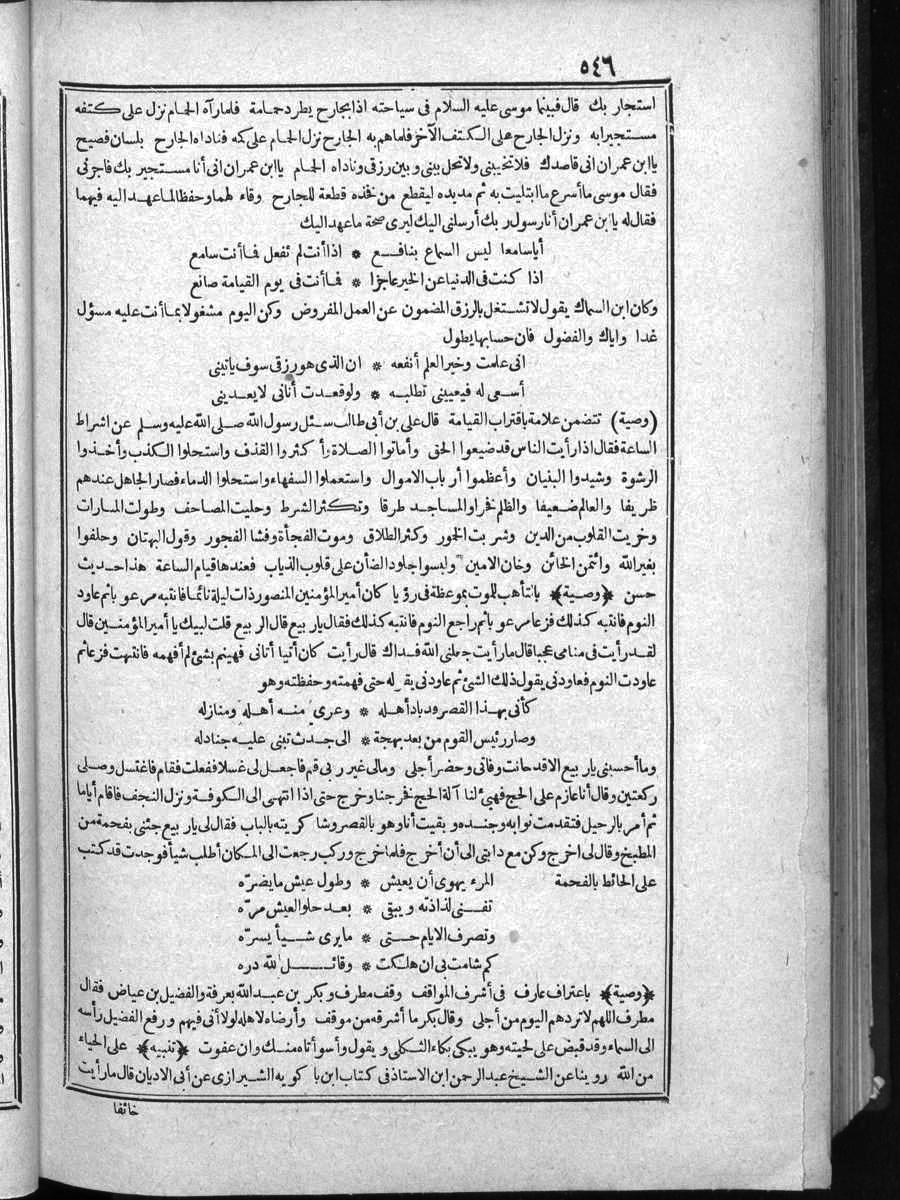 ٥٤٦
استجار بك قال فبينما موسى عليه السلام فى سياحته اذا بجارح يطرد حمامة فلما رآه الحمام نزل على كتفه
مستجيرا به ونزل الجارح على الكتف الآخر فلما هم به الجارح نزل الحمام على كمه فناداه الجارح بلسان فصيح
يا ابن عمران انى قاصدك فلا تخيبنى ولا تحل بينى وبين رزقى وناداه الحمام يا ابن عمران انى أنا مستجير بك فاجرنى
فقال موسى ما أسرع ما ابتليت به ثم مد يده ليقطع من فخذه قطعة للجارح وقاء لهما وحفظا لما عهد اليه فيهما
فقال له يا ابن عمران أنا رسول ربك أرسلنى اليك ليرى صحة ما عهد اليك
أيا سامعا ليس السماع بنافع * اذا أنت لم تفعل فما أنت سامع
اذا كنت فى الدنيا عن الخير عاجزا * فما أنت فى يوم القيامة صانع
وكان ابن السماك يقول لا تشتغل بالرزق المضمون عن العمل المفروض وكن اليوم مشغولا بما أنت عليه مسؤل
غدا واياك والفضول فان حسابها يطول
انى علمت وخير العلم أنفعه * ان الذى هو رزقى سوف ياتينى
أسعى له فيعيينى تطلبه * ولو قعدت أتانى لا يعدينى
(وصية) تتضمن علامة باقتراب القيامة قال على بن أبى طالب سئل رسول الله صلى الله عليه وسلم عن اشراط
الساعة فقال اذا رأيت الناس قد ضيعوا الحق وأماتوا الصلاة وأكثروا القذف واستحلوا الكذب وأخذوا
الرشوة وشيدوا البنيان وأعظموا أرباب الاموال واستعملوا السفهاء واستحلوا الدماء فصار الجاهل عندهم
ظريفا والعالم ضعيفا والظلم فخرا والمساجد طرقا وتكثر الشرط وحليت المصاحف وطولت المنارات
وخربت القلوب من الدين وشربت الخمور وكثر الطلاق وموت الفجأة وفشا الفجور وقول البهتان وحلفوا
بغير الله وائتمن الخائن وخان الامين ولبسوا جلود الضأن على قلوب الذياب فعندها قيام الساعة هذا حديث
حسن ﴿وصية﴾ بالتأهب للموت بموعظة فى رؤيا كان أمير المؤمنين المنصور ذات ليلة نائما فانتبه مرعوبا ثم عاود
النوم فانتبه كذلك فزعا مرعوبا ثم راجع النوم فانتبه كذلك فقال يا ربيع قال الربيع قلت لبيك يا أمير المؤمنين قال
لقد رأيت فى منامى عجبا قال ما رأيت جعلنى الله فداك قال رأيت كأن آتيا أتانى فهينم بشئ لم أفهمه فانتبهت فزعا ثم
عاودت النوم فعاودنى يقول ذلك الشئ ثم عاودنى يقوله حتى فهمته وحفظته وهو
كأنى بهذا القصر قد باد أهله * وعرى منه أهله ومنازله
وصار رئيس القوم من بعد بهجة * الى جدث تبنى عليه جنادله
وما أحسبنى يا ربيع الا قد حانت وفاتى وحضر أجلى ومالى غير ربى قم فاجعل لى غسلا ففعلت فقام فاغتسل وصلى
ركعتين وقال أنا عازم على الحج فهيئ لنا آلة الحج فخرجنا وخرج حتى اذا انتهى الى الكوفة ونزل النجف فاقام أياما
ثم أمر بالرحيل فتقدمت نوابه وجنده وبقيت أنا وهو بالقصر وشاكريته بالباب فقال لى يا ربيع جئنى بفحمة من
المطبخ وقال لى اخرج وكن مع دابتى الى أن أخرج فلما خرج وركب رجعت الى المكان أطلب شيأ فوجدت قد كتب
على الحائط بالفحمة المرء يهوى أن يعيش * وطول عيش ما يضرّه
تفنى لذاذته ويبقى * بعد حلو العيش مرّه
وتصرف الايام حتى * ما يرى شيأ يسرّه
كم شامت بى ان هلكت * وقائل لله دره
﴿وصية﴾ باعتراف عارف فى أشرف المواقف وقف مطرف وبكر بن عبد الله بعرفة والفضيل بن عياض فقال
مطرف اللهم لا تردهم اليوم من أجلى وقال بكر ما أشرفه من موقف وأرضاه لاهله لولا أنى فيهم ورفع الفضيل رأسه
الى السماء وقد قبض على لحيته وهو يبكى بكاء الثكلى ويقول وا سوأتاه منك وان عفوت ﴿تنبيه﴾ على الحياء
من الله روينا عن الشيخ عبد الرحمن ابن الاستاذ فى كتاب ابن باكويه الشيرازى عن أبى الاديان قال ما رأيت
خائفا